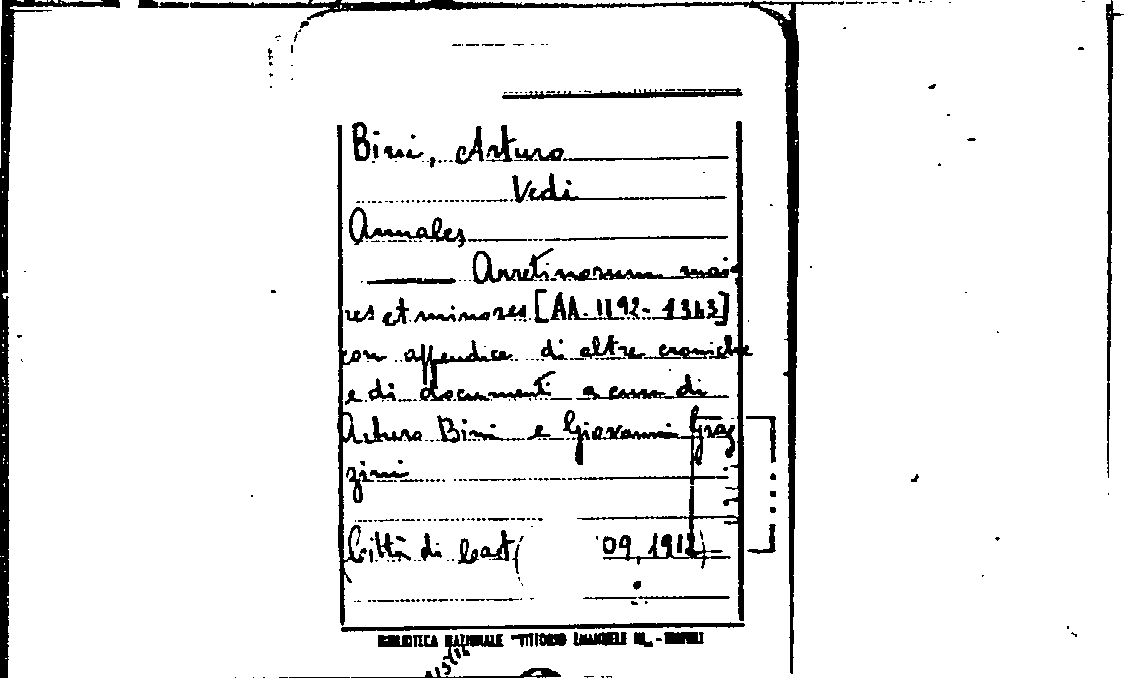 Bini, Arturo
Vedi
Annales
Arretinorum maio
res et minores [AA. 1192-1343]
con appendice di altre croniche
e di documenti a cura di
Arturo Bini e Giovanni Graz
zini
(Città di Cast( 09, 1912)
BIBLIOTECA NAZIONALE "VITTORIO EMANUELE III" - NAPOLI